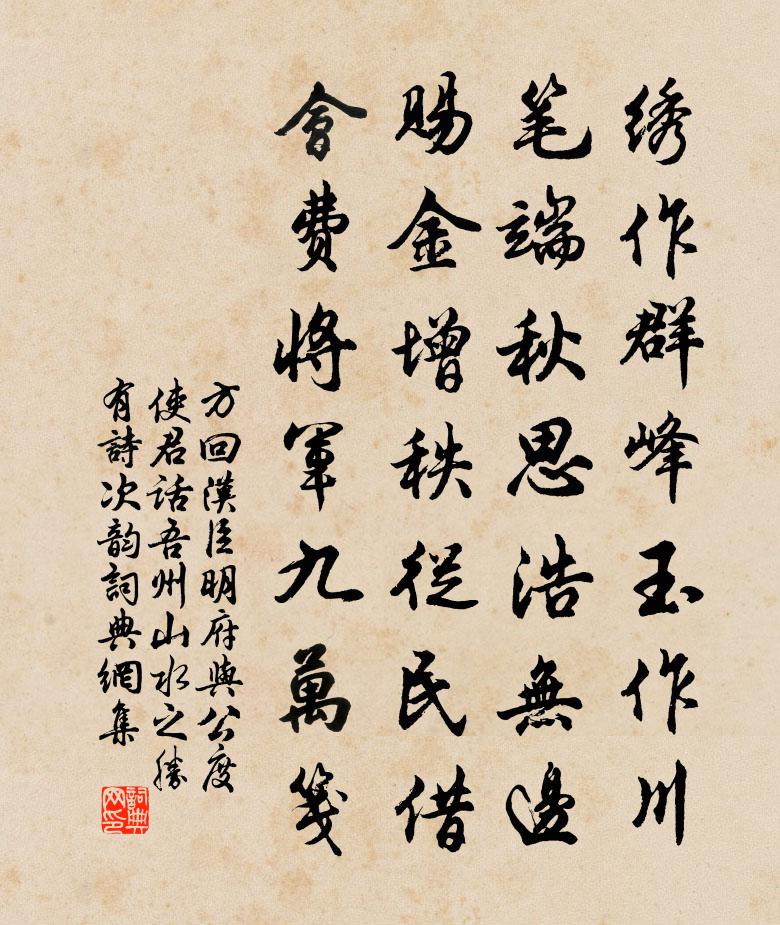 绣作群峰玉作川
笔端秋思浩無邊
賜金增秩從民借
會費將軍九萬箋
方回漢臣明府與公度
使君話吾州山水之勝
有詩次韵詞典網集
詞典网印